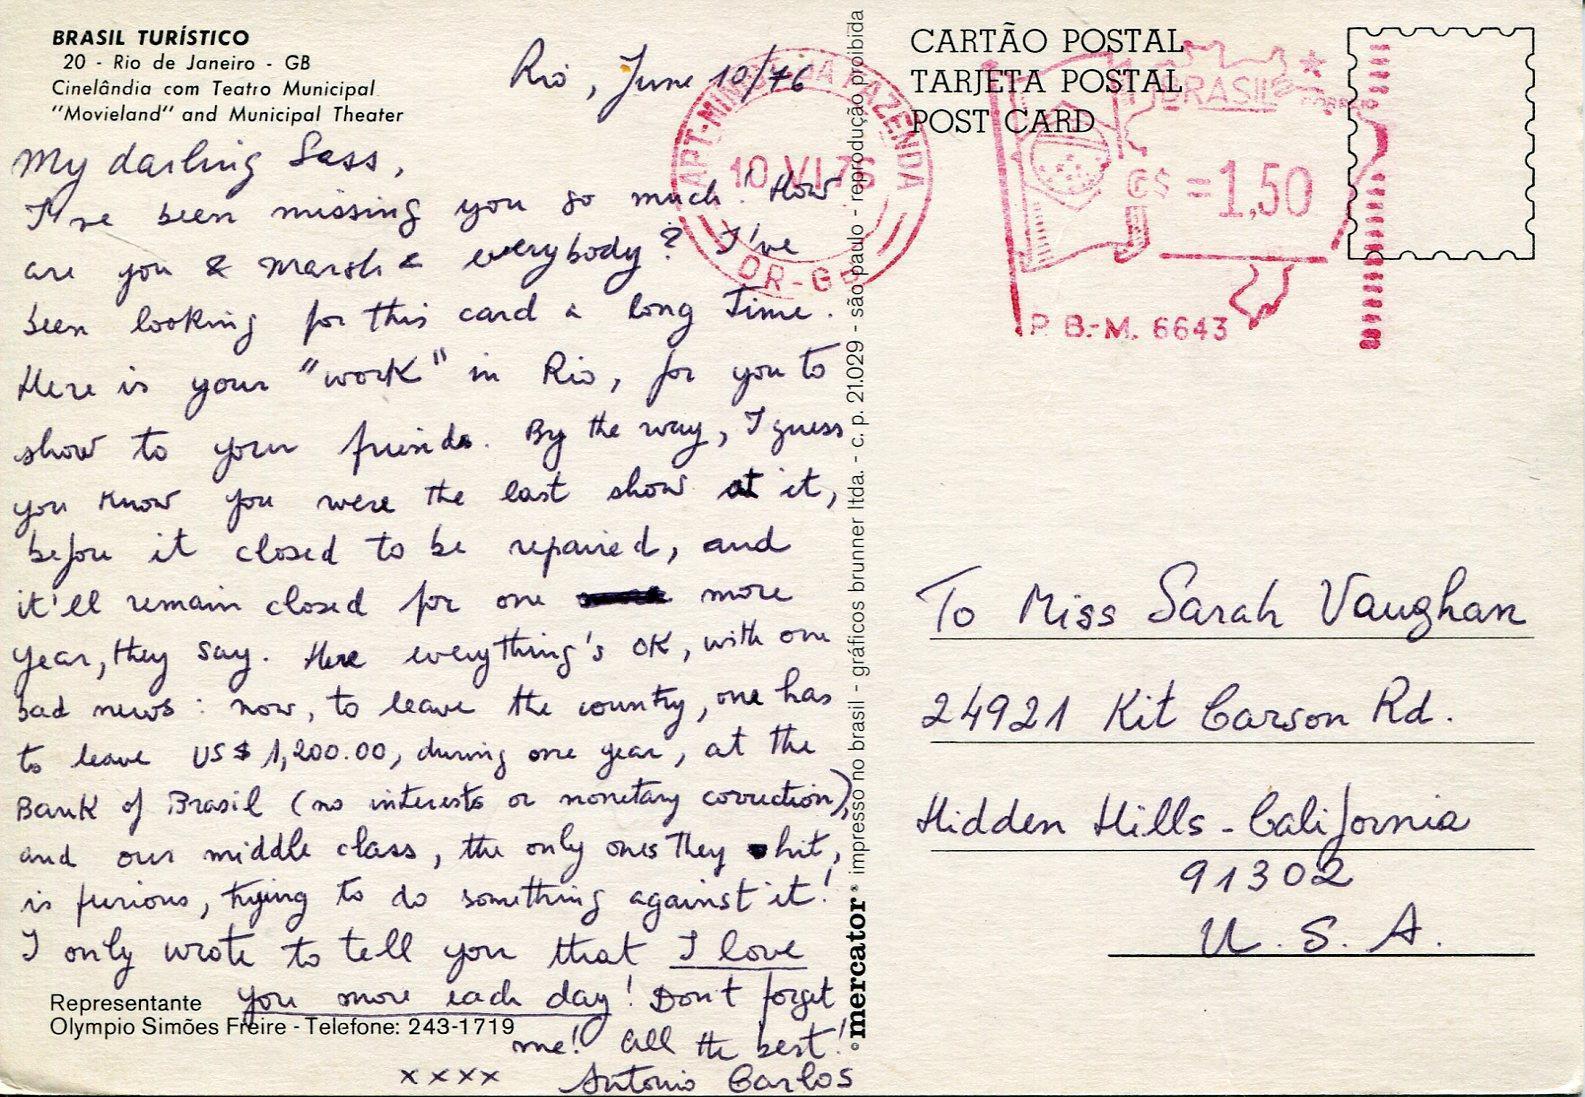 BRASIL TURÍSTICO
20 - Rio de Janeiro - GB
Cinelândia com Teatro Municipal
"Movieland" and Municipal Theater
Rio, June 10/76
My darling Sass,
I've been missing you so much! How
are you & Marsh & everybody? I've
been looking for this card a long time.
Here is your "work" in Rio, for you to
show to your friends. By the way, I guess
you know you were the last show at it,
before it closed to be repaired, and
it'll remain closed for one more
year, they say. Here everything's OK, with one
bad news: now, to leave the country, one has
to leave US$ 1,200.00, during one year, at the
Bank of Brasil (no interests or monetary correction),
and our middle class, the only ones they hit,
is furious, trying to do something against it!
I only wrote to tell you that I love
you more each day! Don't forget
me! All the best!
xxxx Antonio Carlos
Representante
Olympio Simões Freire - Telefone: 243-1719
©mercator® impresso no brasil - gráficos brunner ltda. - c. p. 21.029 - são paulo - reprodução proibida
CARTÃO POSTAL
TARJETA POSTAL
POST CARD
MINIST. DA FAZENDA
10 VI 76
DR-GB
BRASIL
CORREIO
C$ =1,50
P.B.-M. 6643
To Miss Sarah Vaughan
24921 Kit Carson Rd.
Hidden Hills - California
91302
U.S.A.